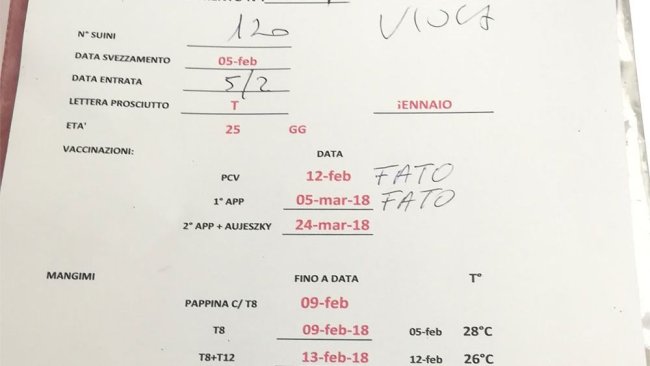 VIOLA
N° SUINI 120
DATA SVEZZAMENTO 05-feb
DATA ENTRATA 5/2
LETTERA PROSCIUTTO T GENNAIO
ETA' 25 GG
VACCINAZIONI: DATA
PCV 12-feb FATO
1° APP 05-mar-18 FATO
2° APP + AUJESZKY 24-mar-18
MANGIMI FINO A DATA T°
PAPPINA C/ T8 09-feb
T8 09-feb-18 05-feb 28°C
T8+T12 13-feb-18 12-feb 26°C